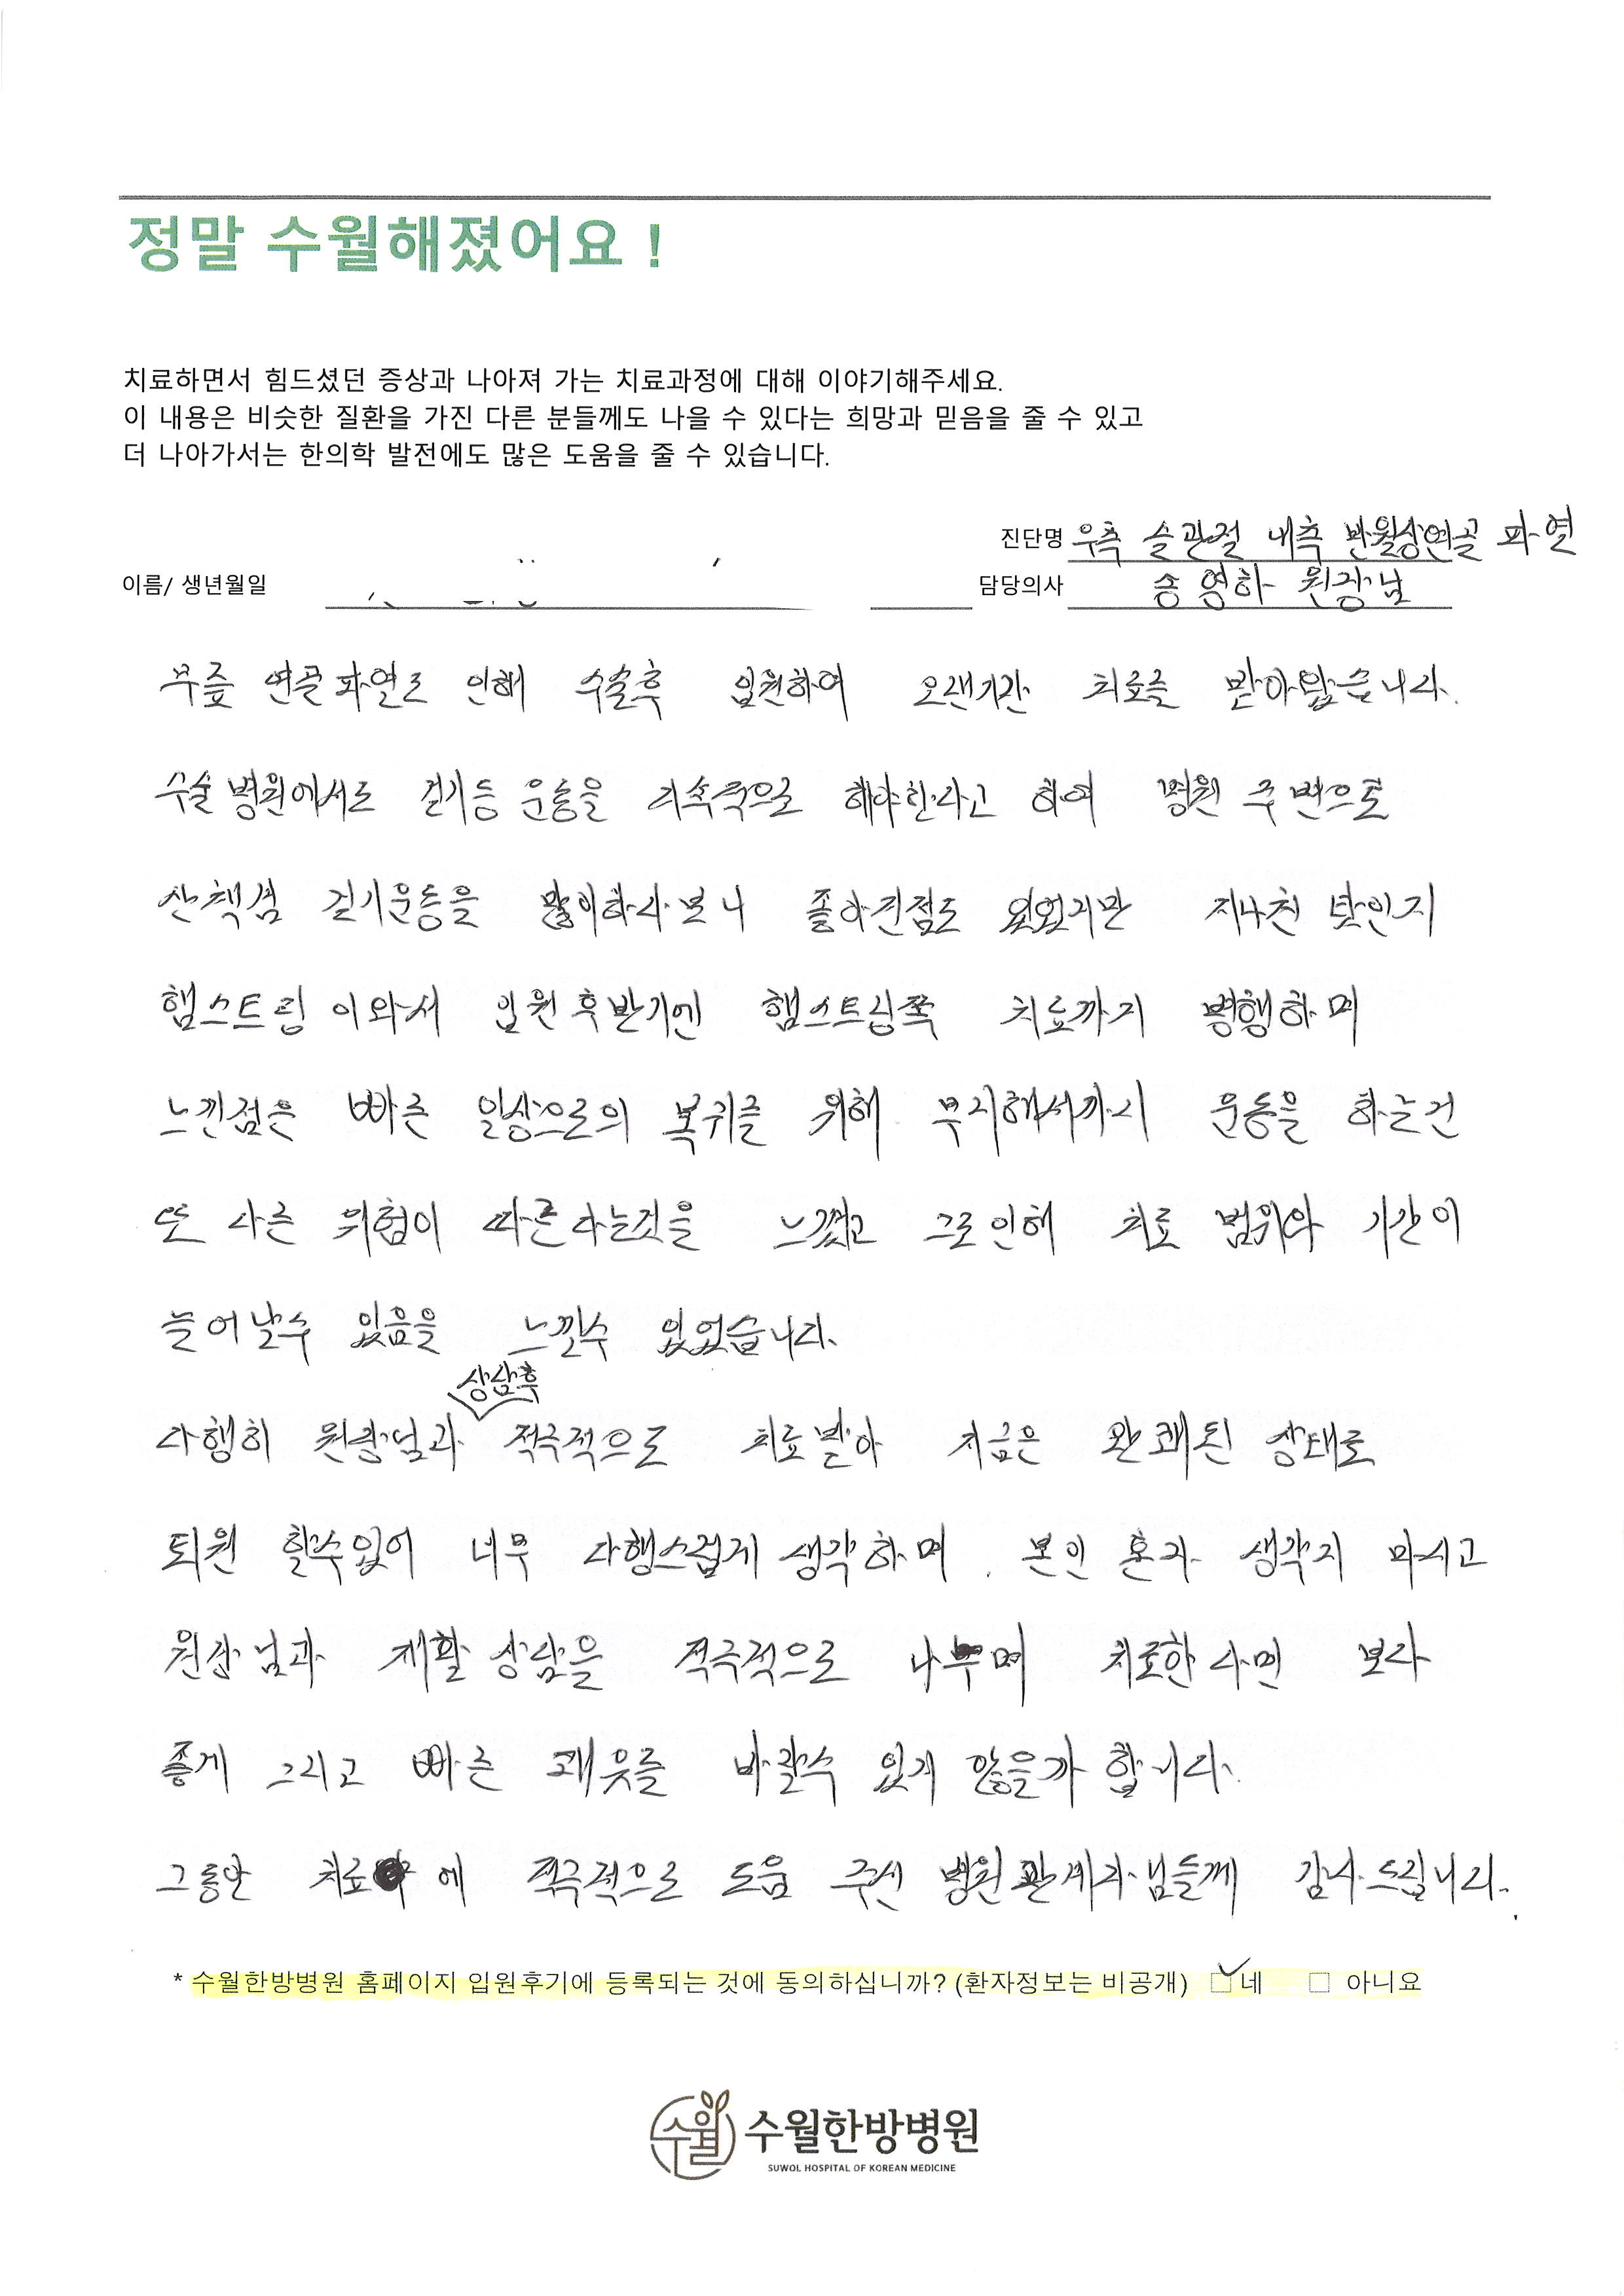 정말 수월해졌어요 !
치료하면서 힘드셨던 증상과 나아져 가는 치료과정에 대해 이야기해주세요.
이 내용은 비슷한 질환을 가진 다른 분들께도 나을 수 있다는 희망과 믿음을 줄 수 있고
더 나아가서는 한의학 발전에도 많은 도움을 줄 수 있습니다.
진단명 우측 슬관절 내측 반월상연골 파열
이름/ 생년월일
담당의사 송영하 원장님
무릎 연골파열로 인해 수술후 입원하여 오랜기간 치료를 받아왔습니다.
수술 병원에서도 걷기등 운동을 지속적으로 해야한다고 하여 병원 주변으로
산책겸 걷기운동을 많이하다보니 좋아진점도 있었지만 지나친 탓인지
햄스트링 이와서 입원후반기엔 햄스트링쪽 치료까지 병행하며
느낀점은 빠른 일상으로의 복귀를 위해 무리해서까지 운동을 하는건
또 다른 위험이 따른다는것을 느꼈고 그로인해 치료 범위와 기간이
늘어날수 있음을 느낄수 있었습니다.
상담후
다행히 원장님과 적극적으로 치료받아 지금은 완쾌된 상태로
퇴원 할수있어 너무 다행스럽게 생각하며. 본인 혼자 생각지 마시고
원장님과 재활 상담을 적극적으로 나누며 치료한다면 보다
좋게 그리고 빠른 쾌유를 바랄수 있지 않을까 합니다.
그동안 치료에 적극적으로 도움 주신 병원관계자님들께 감사드립니다.
* 수월한방병원 홈페이지 입원후기에 등록되는 것에 동의하십니까? (환자정보는 비공개) □네 □ 아니요
수월 수월한방병원
SUWOL HOSPITAL OF KOREAN MEDICINE